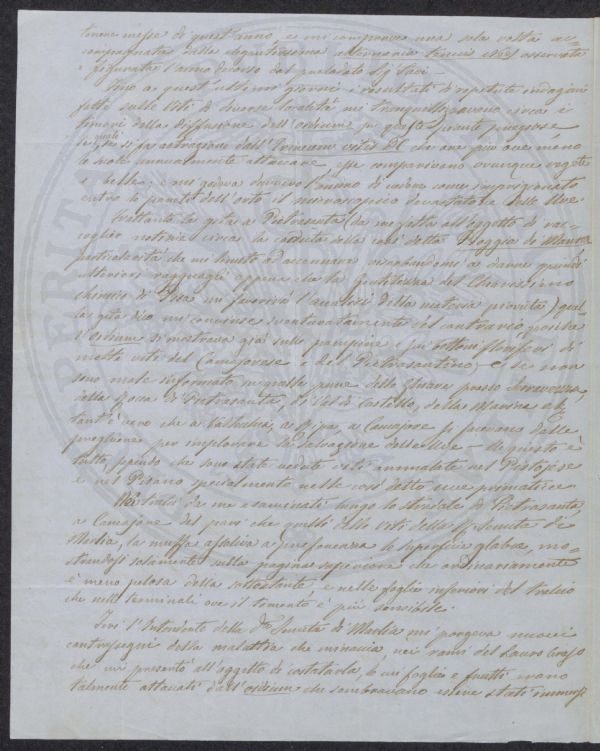 messe di quest'anno, e mi comparve una sola volta ac-
compagnata dalla elegantissima alternaria tenuis Nees osservata
e figurata l'anno decorso dal prelodato Sig.
Fino a quest'ultimi giorni i resultati di ripetute indagini
fatte sulle Viti di diverse località mi tranquillizzavano circa i
timori della diffusione dell'oidium su queste piante preziose
se si fa astrazione dall'Erineum vitis DC che ove più ove meno
le suole annualmente attaccare esse comparivano ovunque vegete
e belle; e mi godeva l'animo di vedere come imprigionato
entro le pareti dell'orto il microscopico devastatore delle Uve
Frattanto la gita a Pietrasanta (da me fatta all'oggetto di rac-
coglier notizie circa la caduta della così detta Pioggia di Manna
particolarità che mi limito ad accennare riserbandomi a darne quindi
ulteriori ragguagli appena che la gentilezza del Chiarissimo
chimico di Pisa mi favorirà l'analisi della materia piovuta) quel-
la gita dico mi convinse sventuratamente del contrario poiché
l'oidium si mostrava già sulle pampine e sui bottoni floriferi di
molte viti del Camajorese e del Pietrasantino, e se non
sono male informato in quelle pure delle Chiare presso Seravezza,
della Rocca di Pietrasanta, di Val di Castello, della Marina e
tant'è vero che a Valdicastello, a Ripa, a Camajore si facevano delle
preghiere per implorare la salvazione delle Uve – Né questo è
tutto, sapendo che sono state vedute viti ammalate nel Pistojese
e nel Pisano specialmente nelle così dette uve primaticce
Nei tralci da me esaminati lungo lo stradale di Pietrasanta
a Camajore del pari che quelli delle Viti della R. Tenuta di
Marlia, la muffa assaliva a preferenza le superficie glabre, mo-
strandosi solamente nella pagina superiore che ordinariamente
è meno pelosa della sottostante, e nelle foglie inferiori del tralcio
che nelle terminali ove il tomento è più sensibile.
Ieri l'Intendente della Dta Tenuta di Marlia mi porgeva nuovi
contrassegni della malattia che minaccia, nei rami del Lauro Ceraso
che mi presentò all'oggetto di costatarla, le cui foglie e frutti erano
talmente attaccati dall'oidium che sembravano essere stati immersi